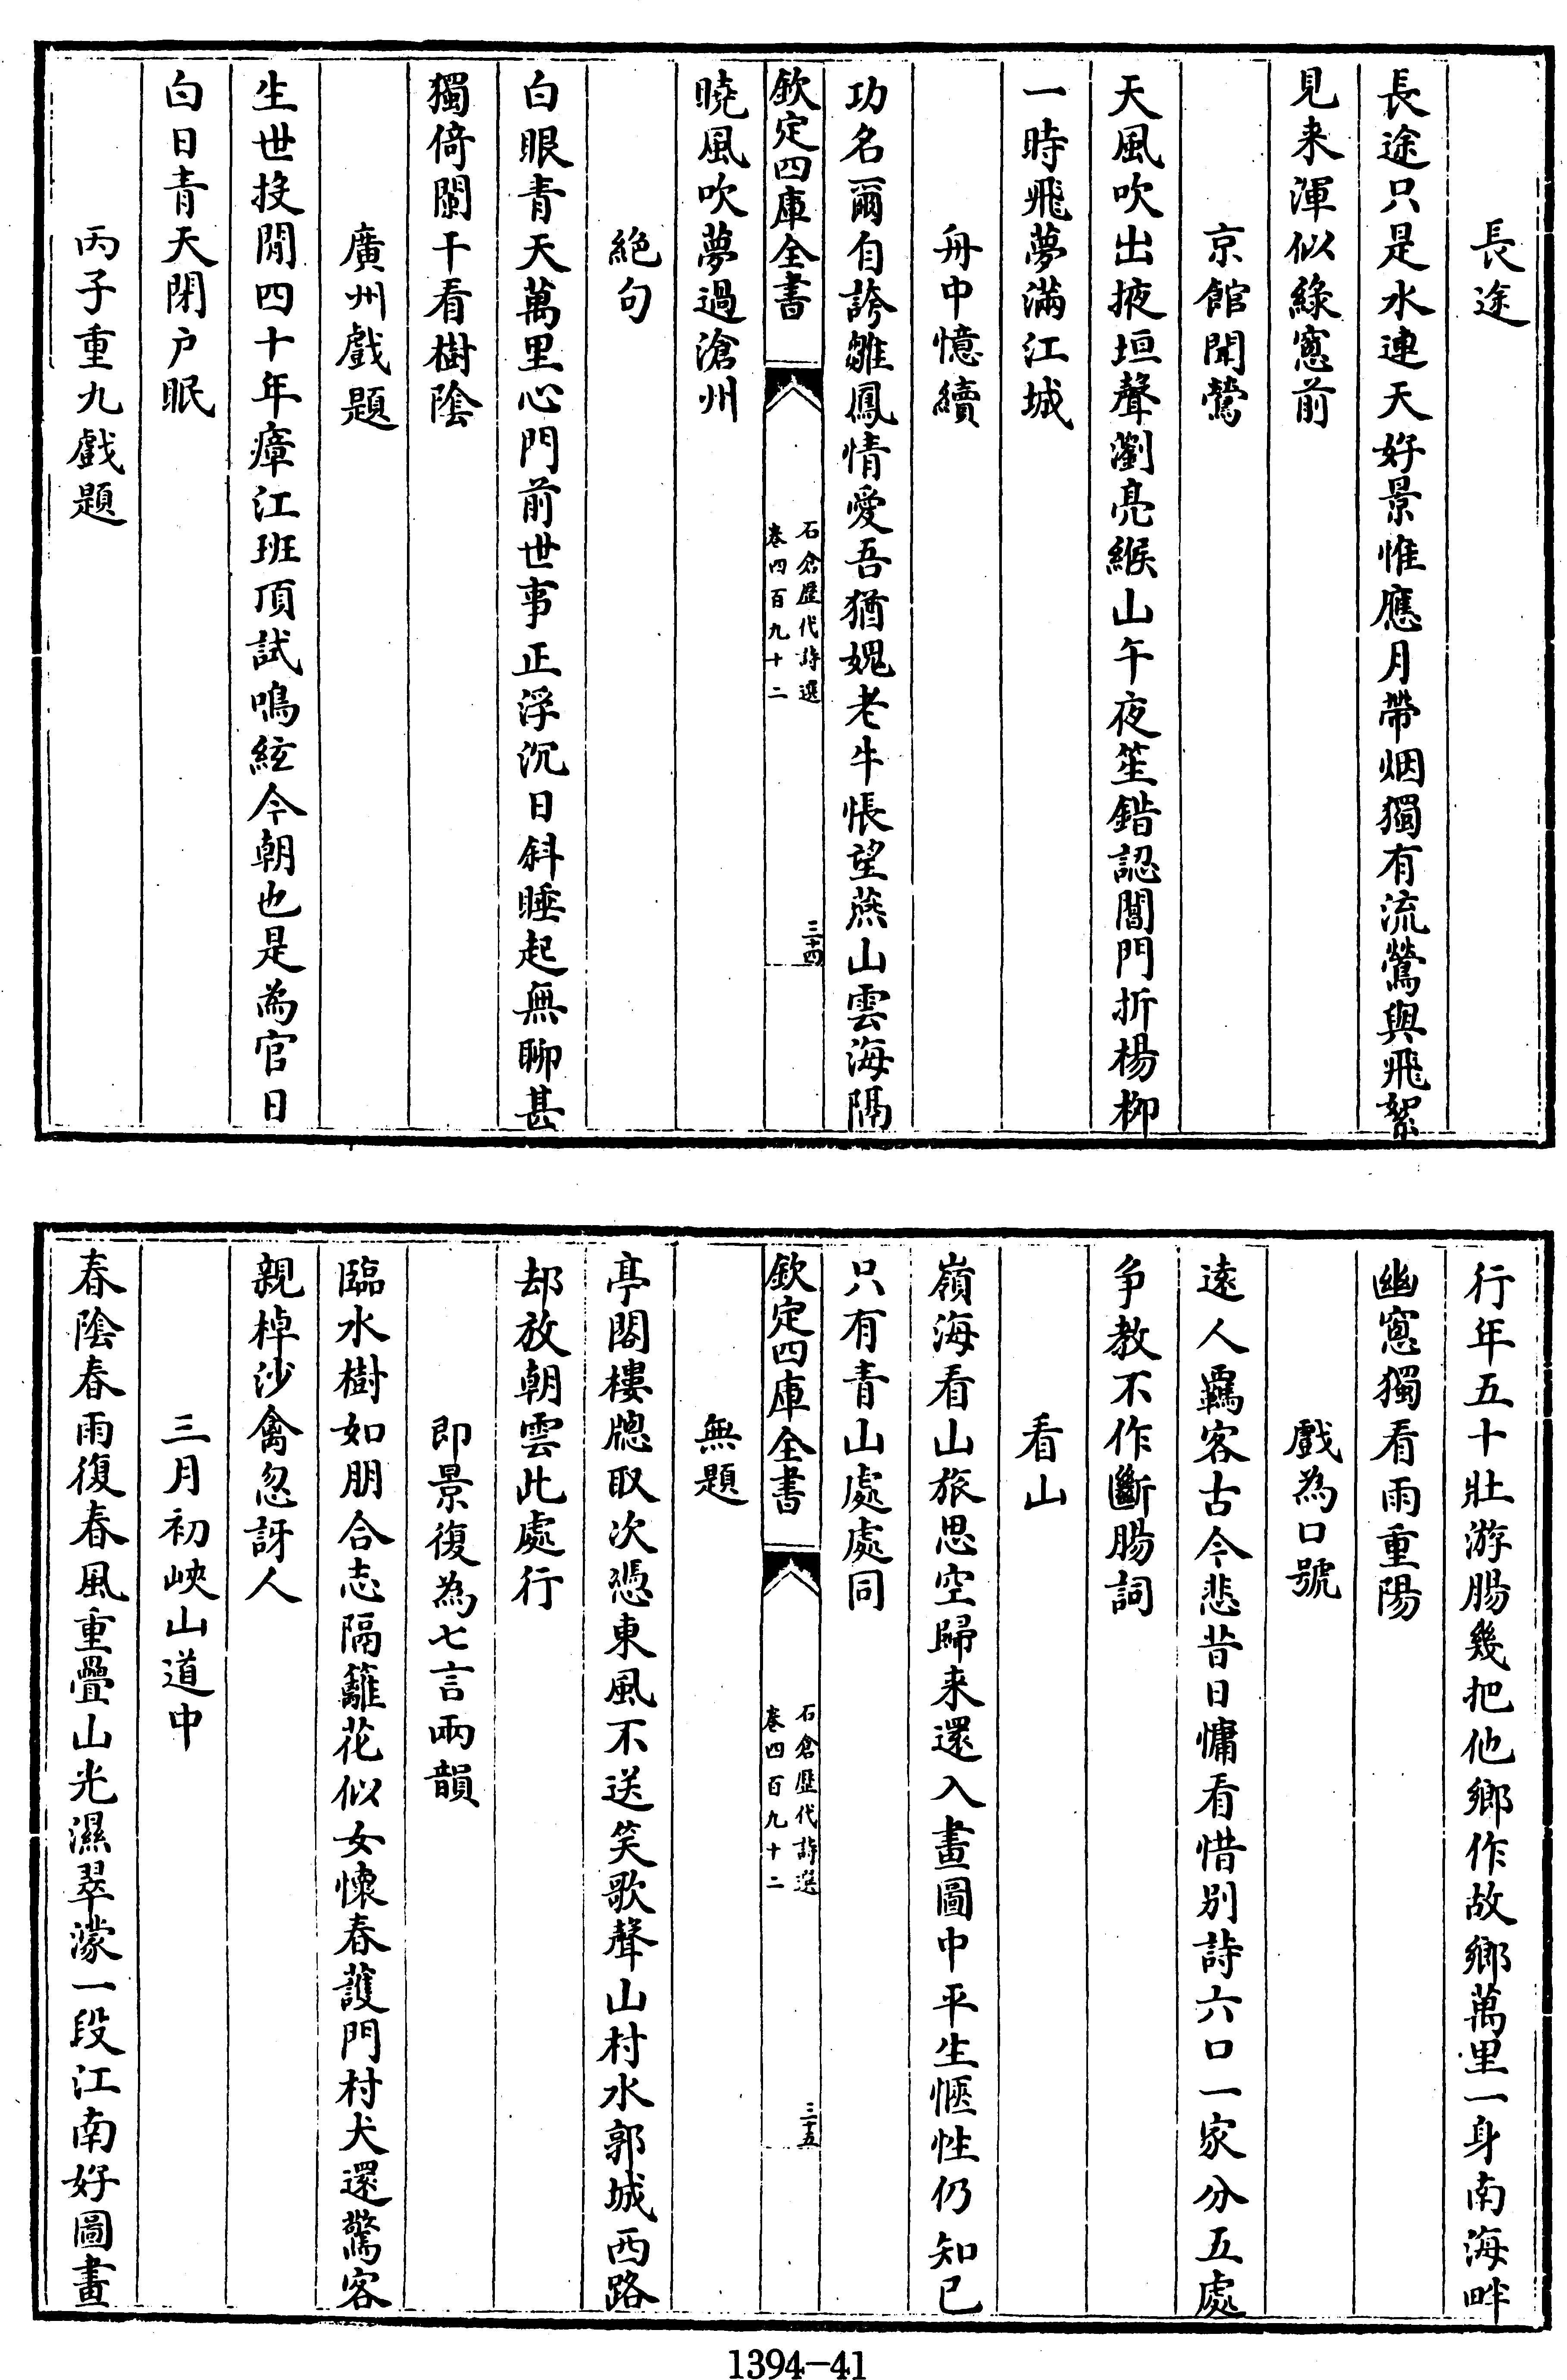 長途
長途只是水連天好景惟應月帶烟獨有流鶯與飛絮
見来渾似綠窻前
京館聞鶯
天風吹出掖垣聲瀏亮緱山午夜笙錯認閶門折楊柳
一時飛夢滿江城
舟中憶續
功名爾自誇雛鳳情愛吾猶媿老牛悵望燕山雲海隔
欽定四庫全書
石倉歷代詩選
卷四百九十二
三十四
曉風吹夢過滄州
絕句
白眼青天萬里心門前世事正浮沉日斜睡起無聊甚
獨倚闌干看樹陰
廣州戲題
生世投閒四十年瘴江班頂試鳴絃今朝也是為官日
白日青天閉户眠
丙子重九戲題
行年五十壯游腸幾把他鄉作故鄉萬里一身南海畔
幽窻獨看雨重陽
戲為口號
遠人羈客古今悲昔日慵看惜别詩六口一家分五處
争教不作斷腸詞
看山
嶺海看山旅思空歸来還入畫圖中平生愜性仍知已
只有青山處處同
欽定四庫全書
石倉歷代詩選
卷四百九十二
三十五
無題
亭閣樓牕取次憑東風不送笑歌聲山村水郭城西路
却放朝雲此處行
即景復為七言兩韻
臨水樹如朋合志隔籬花似女懷春護門村犬還驚客
親棹沙禽忽訝人
三月初峽山道中
春陰春雨復春風重疊山光濕翠濛一段江南好圖畫
1394-41